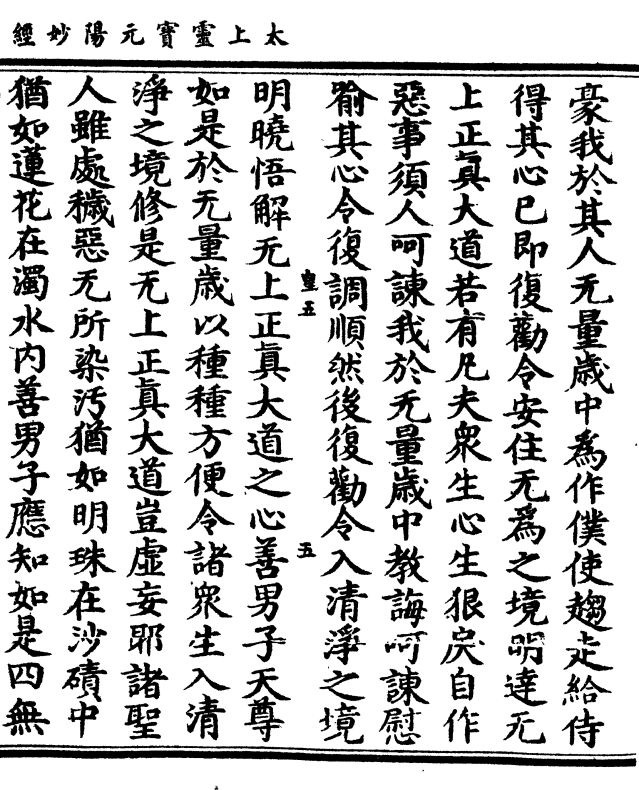 太上靈寶元陽妙經
豪我於其人无量歲中爲作僕使趨走給侍
得其心已即復勸令安住无爲之境明達无
上正真大道若有凡夫衆生心生狠戾自作
惡事須人呵諫我於无量歲中教誨呵諫慰
喻其心令復調順然後復勸令入清淨之境
皇五
五
明曉悟解无上正真大道之心善男子天尊
如是於无量歲以種種方便令諸衆生入清
淨之境修是无上正真大道豈虛妄耶諸聖
人雖處穢惡无所染污猶如明珠在沙磧中
猶如蓮花在濁水内善男子應知如是四無